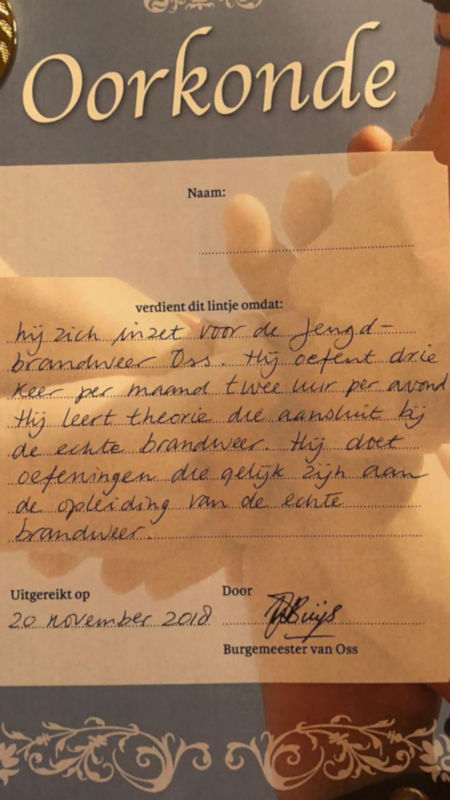 Oorkonde
Naam:
verdient dit lintje omdat:
hij zich inzet voor de Jeugd-
brandweer Oss. Hij oefent drie
keer per maand twee uur per avond
Hij leert theorie die aansluit bij
de echte brandweer. Hij doet
oefeningen die gelijk zijn aan
de opleiding van de echte
brandweer.
Uitgereikt op
Door
20 november 2018
Buijs
Burgemeester van Oss